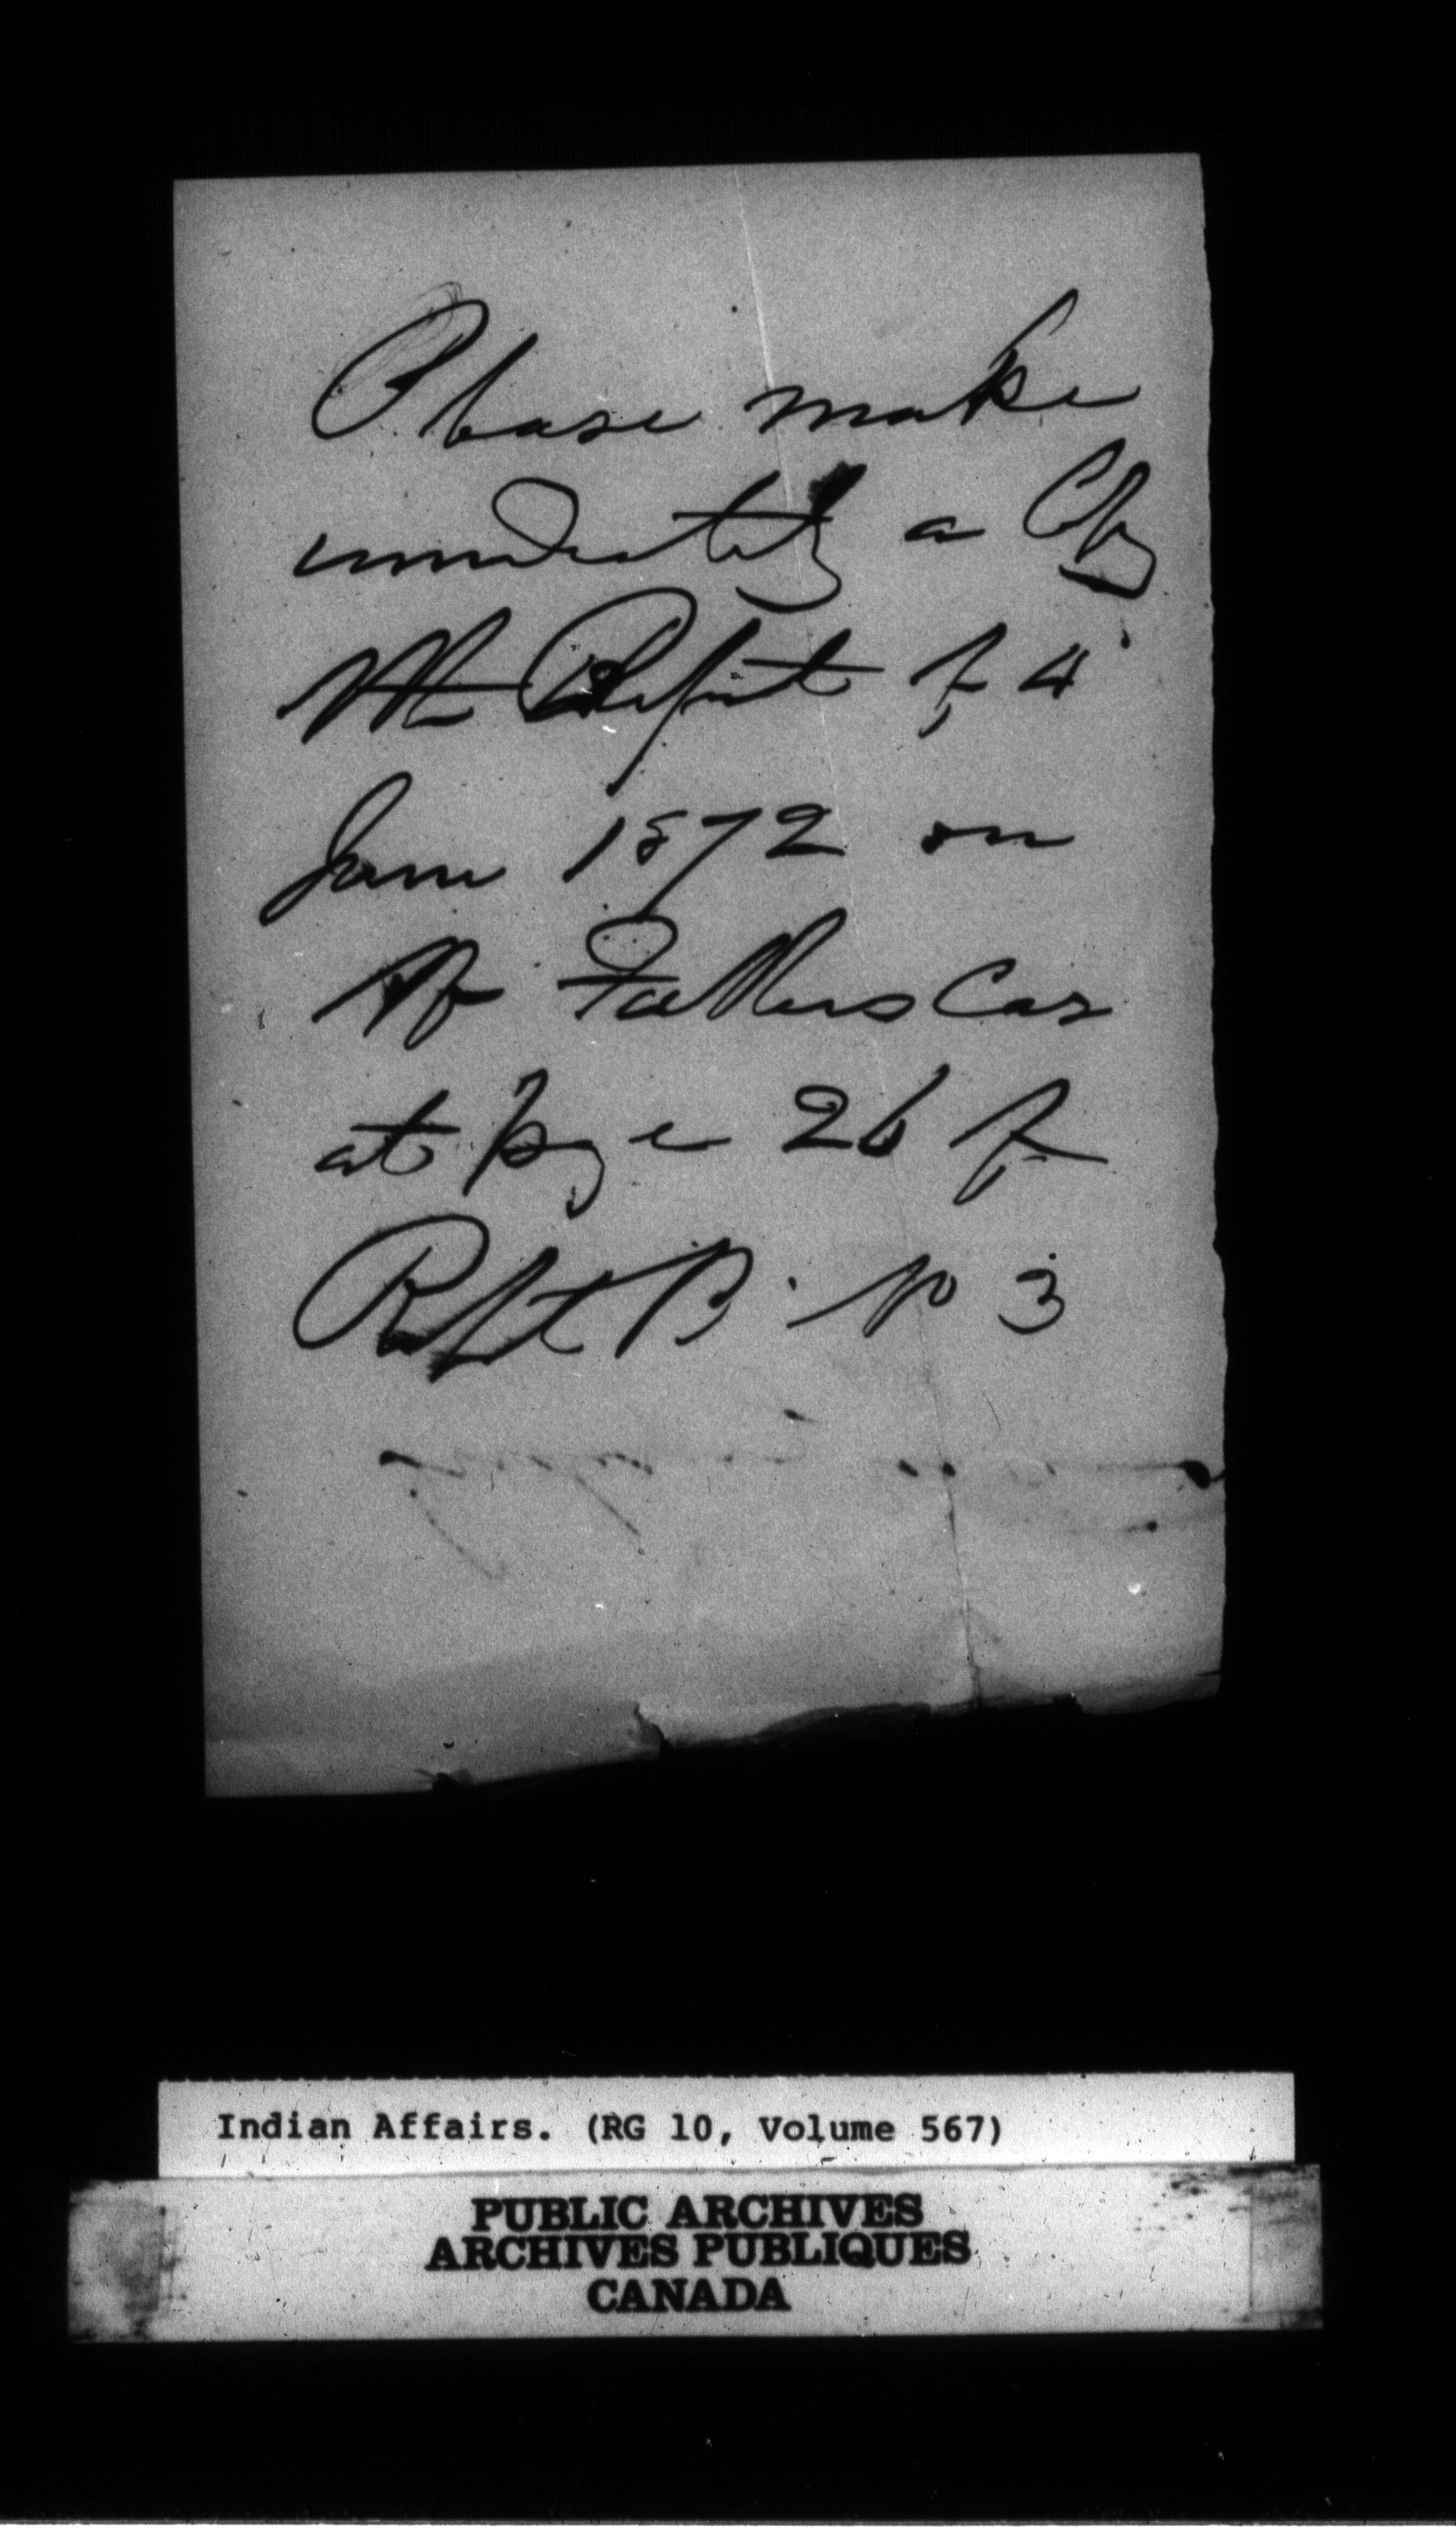 Please make
immediately a Copy
the Report of 4
June 1872 on
Fathers Case
at page 26 of
Report B. No 3
Indian Affairs. (RG 10, Volume 567)
PUBLIC ARCHIVES
ARCHIVES PUBLIQUES
CANADA